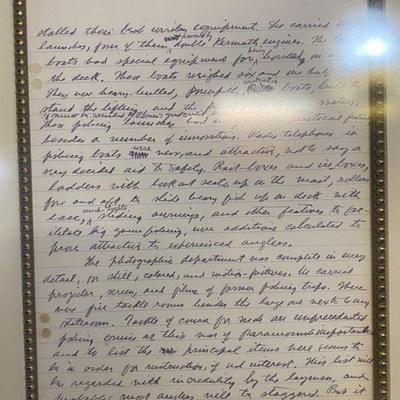 stalled their best wireless equipment. She carried
launches, four of them double Kermath engines. The
boats had special equipment for being hoisted on
the deck. These boats weighed six and one half
They were heavy hulled, powerful boats, built to
stand the lifting and the
These fishing launches had
besides a number of innovations. Radio telephones in
fishing boats were new, and attractive, not to say a
very decided aid to safety. Bait-boxes and ice boxes,
ladders with lookout seats up on the mast, rollers
fore and aft to slide heavy fish up on deck with
ease, sliding awnings, and other features to fac-
ilitate big game fishing, were additions calculated to
prove attractive to experienced anglers.
The photographic department was complete in every
detail, for still, colored, and motion-pictures. We carried
projector, screen, and films of former fishing trips. There
were five tackle rooms besides the large one next to my
stateroom. Tackle of course for such an unprecedented
fishing cruise as this was of paramount importance
and to list the principal items here seems to
be in order for instruction, if not interest. This list will
be regarded with incredulity by the layman, and
probably most anglers will be staggered. But it